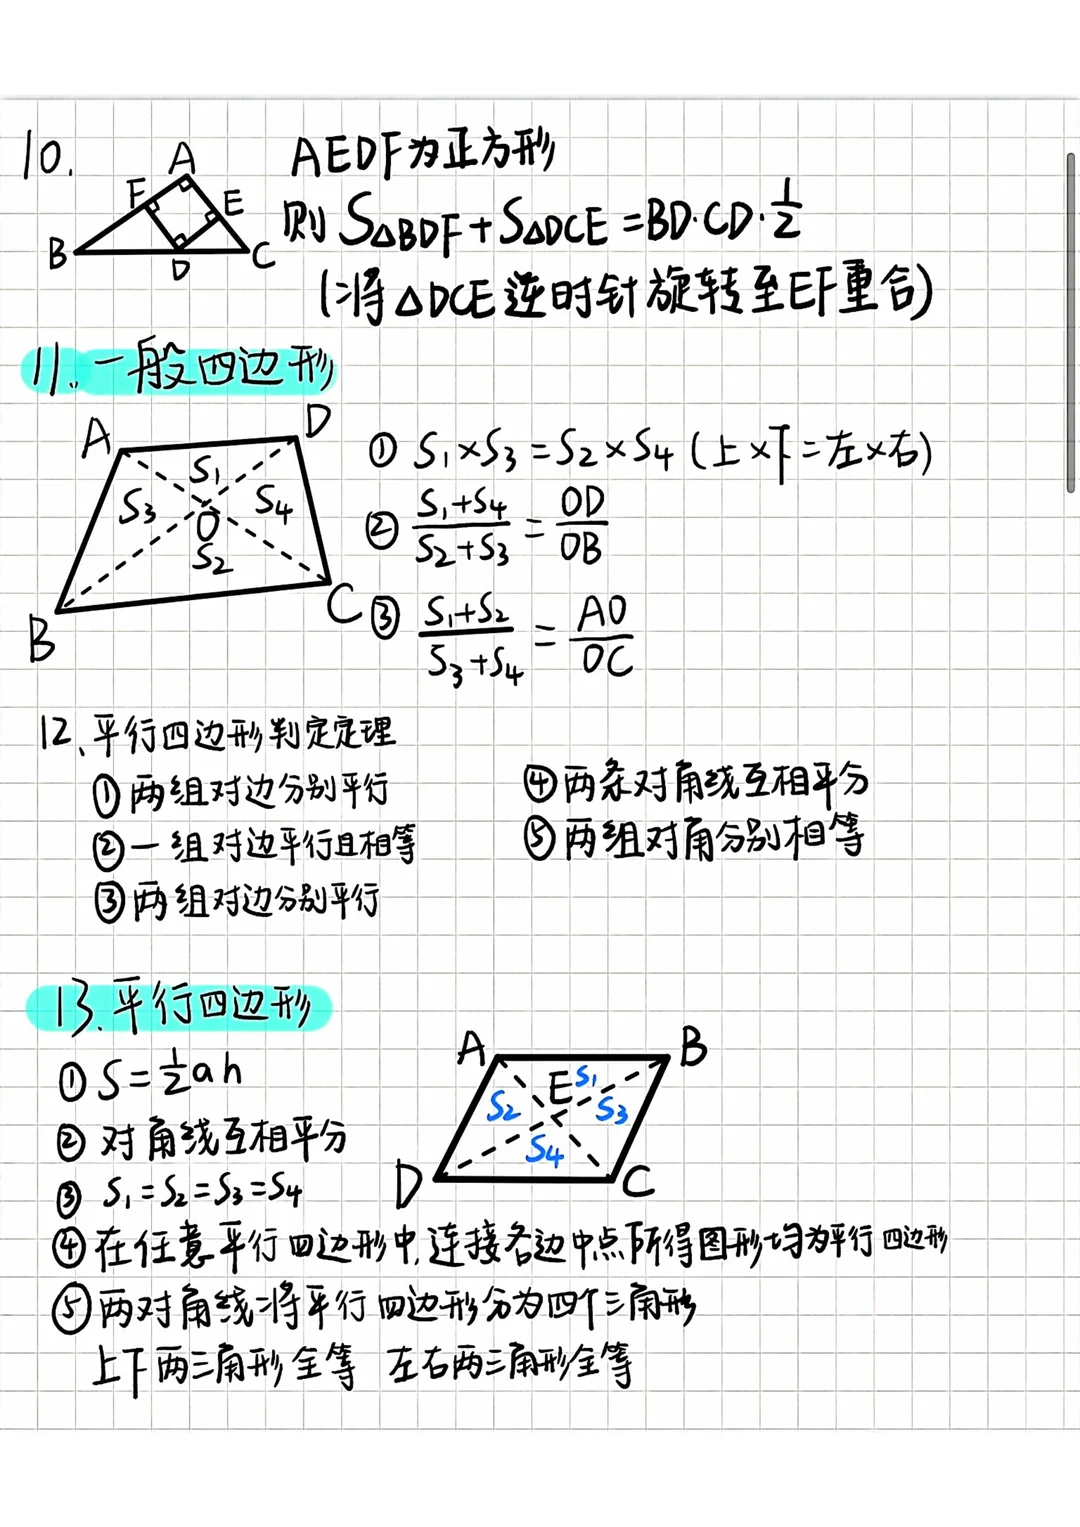 10.
A
F
E
B
D
C
AEDF为正方形
则 S△BDF+S△DCE=BD·CD·1/2
(将△DCE逆时针旋转至EF重合)
11、一般四边形
A
D
S1
S3
S4
O
S2
B
C
① S1×S3=S2×S4 (上×下=左×右)
② (S1+S4)/(S2+S3)=OD/OB
③ (S1+S2)/(S3+S4)=AO/OC
12、平行四边形判定定理
①两组对边分别平行
②一组对边平行且相等
③两组对边分别平行
④两条对角线互相平分
⑤两组对角分别相等
13、平行四边形
① S=1/2ah
② 对角线互相平分
③ S1=S2=S3=S4
A
B
E
S1
S2
S3
S4
D
C
④在任意平行四边形中,连接各边中点所得图形均为平行四边形
⑤两对角线将平行四边形分为四个三角形
上下两三角形全等 左右两三角形全等